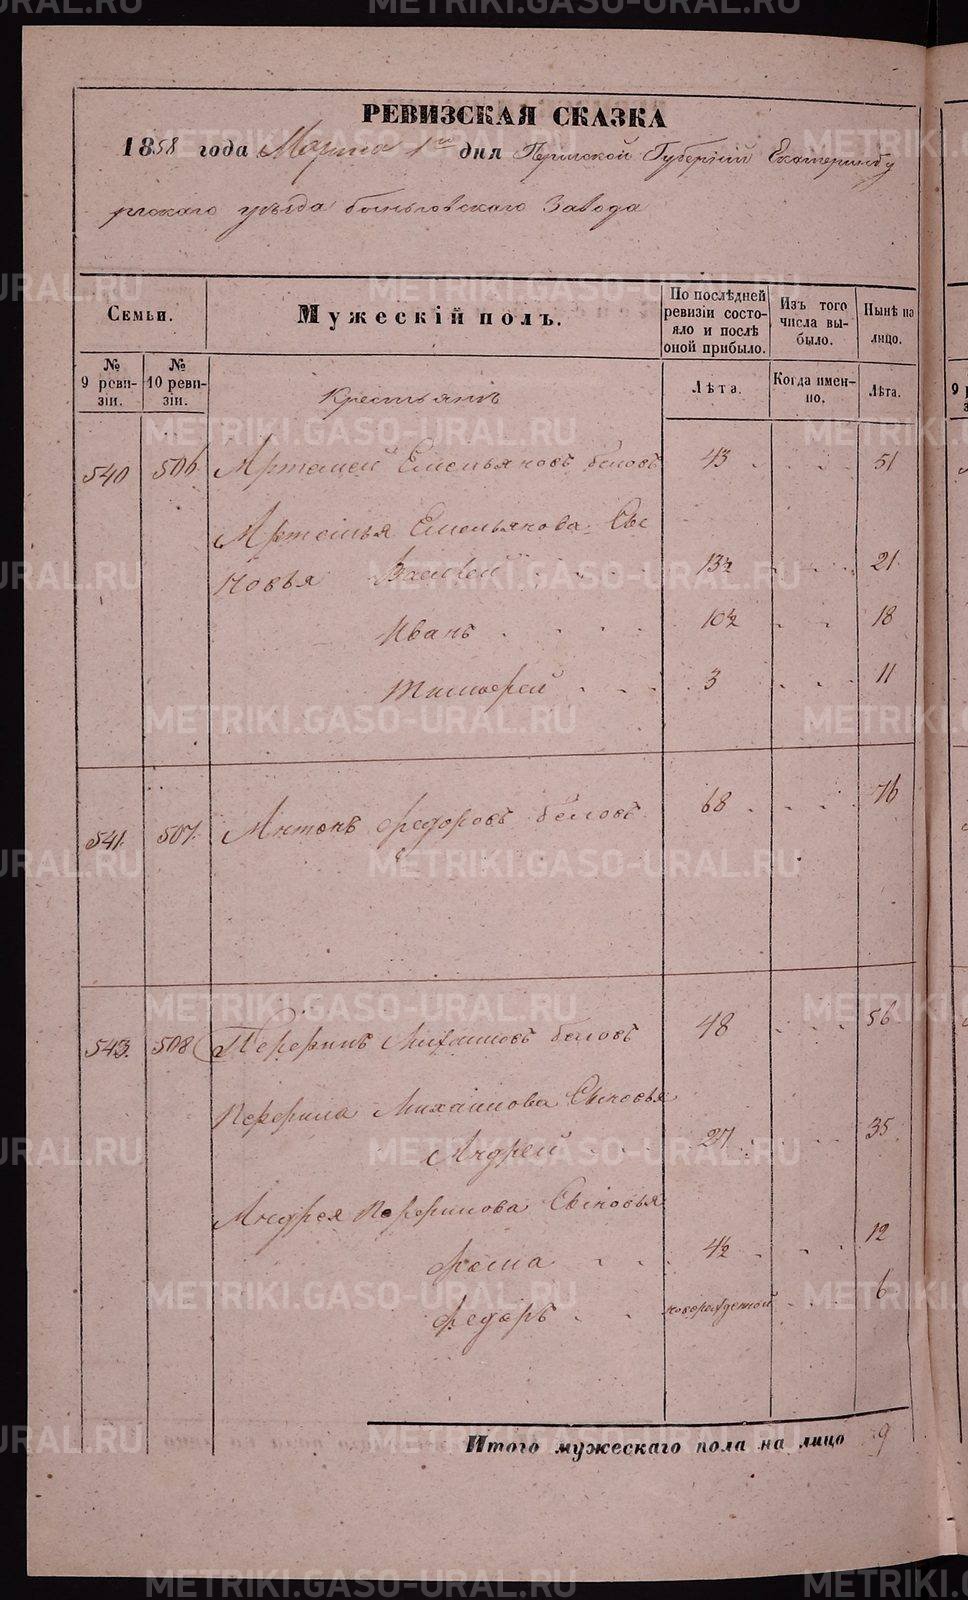 METRIKI.GASO-URAL.RU
РЕВИЗСКАЯ СКАЗКА
1858 года Марта 1го дня Пермской Губернiй Екатеринбу
ргскаго уѣзда быньговскаго Завода
Семьи.
Мужескій полъ.
По послѣдней ревизіи состояло и послѣ оной прибыло.
Изъ того числа выбыло.
Нынѣ на лицо.
№ 9 ревизіи.
№ 10 ревизіи.
Лѣта.
Когда именно.
Лѣта.
Крестьянъ
540 506 Артемей Емельяновъ бѣловъ 43 51
Артемья Емельянова Сы
новья Василей 13½ 21
Иванъ 10½ 18
Тимофей 3 11
541. 507. Антонъ федоровъ бѣловъ 68 76
543. 508 Перфилъ Михаиловъ бѣловъ 48 56
Перфила Михаилова Сыновья
Андрей 27 35
Андрея Перфилова Сыновья
фома 4½ 12
федоръ новорожденной 6
Итого мужескаго пола на лицо 9